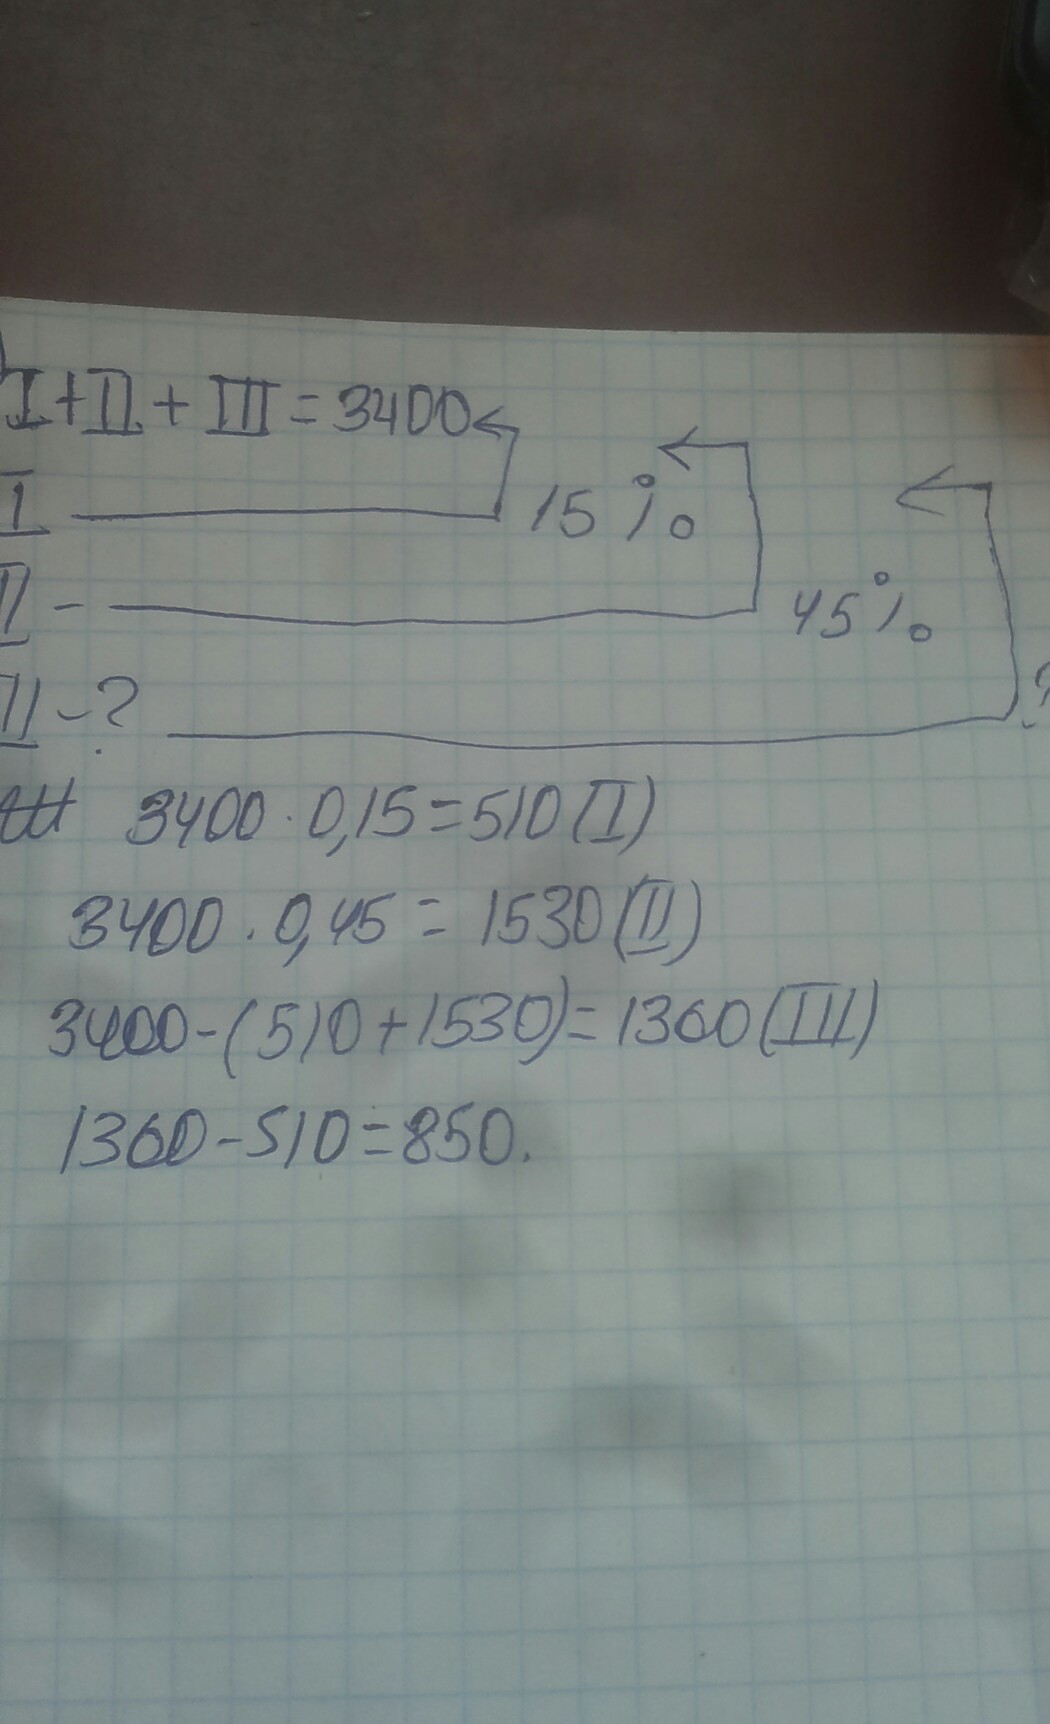 I+II+III=3400
I 15%
II - 45%
II-? ?
3400·0,15=510(I)
3400·0,45=1530(II)
3400-(510+1530)=1360(III)
1360-510=850.